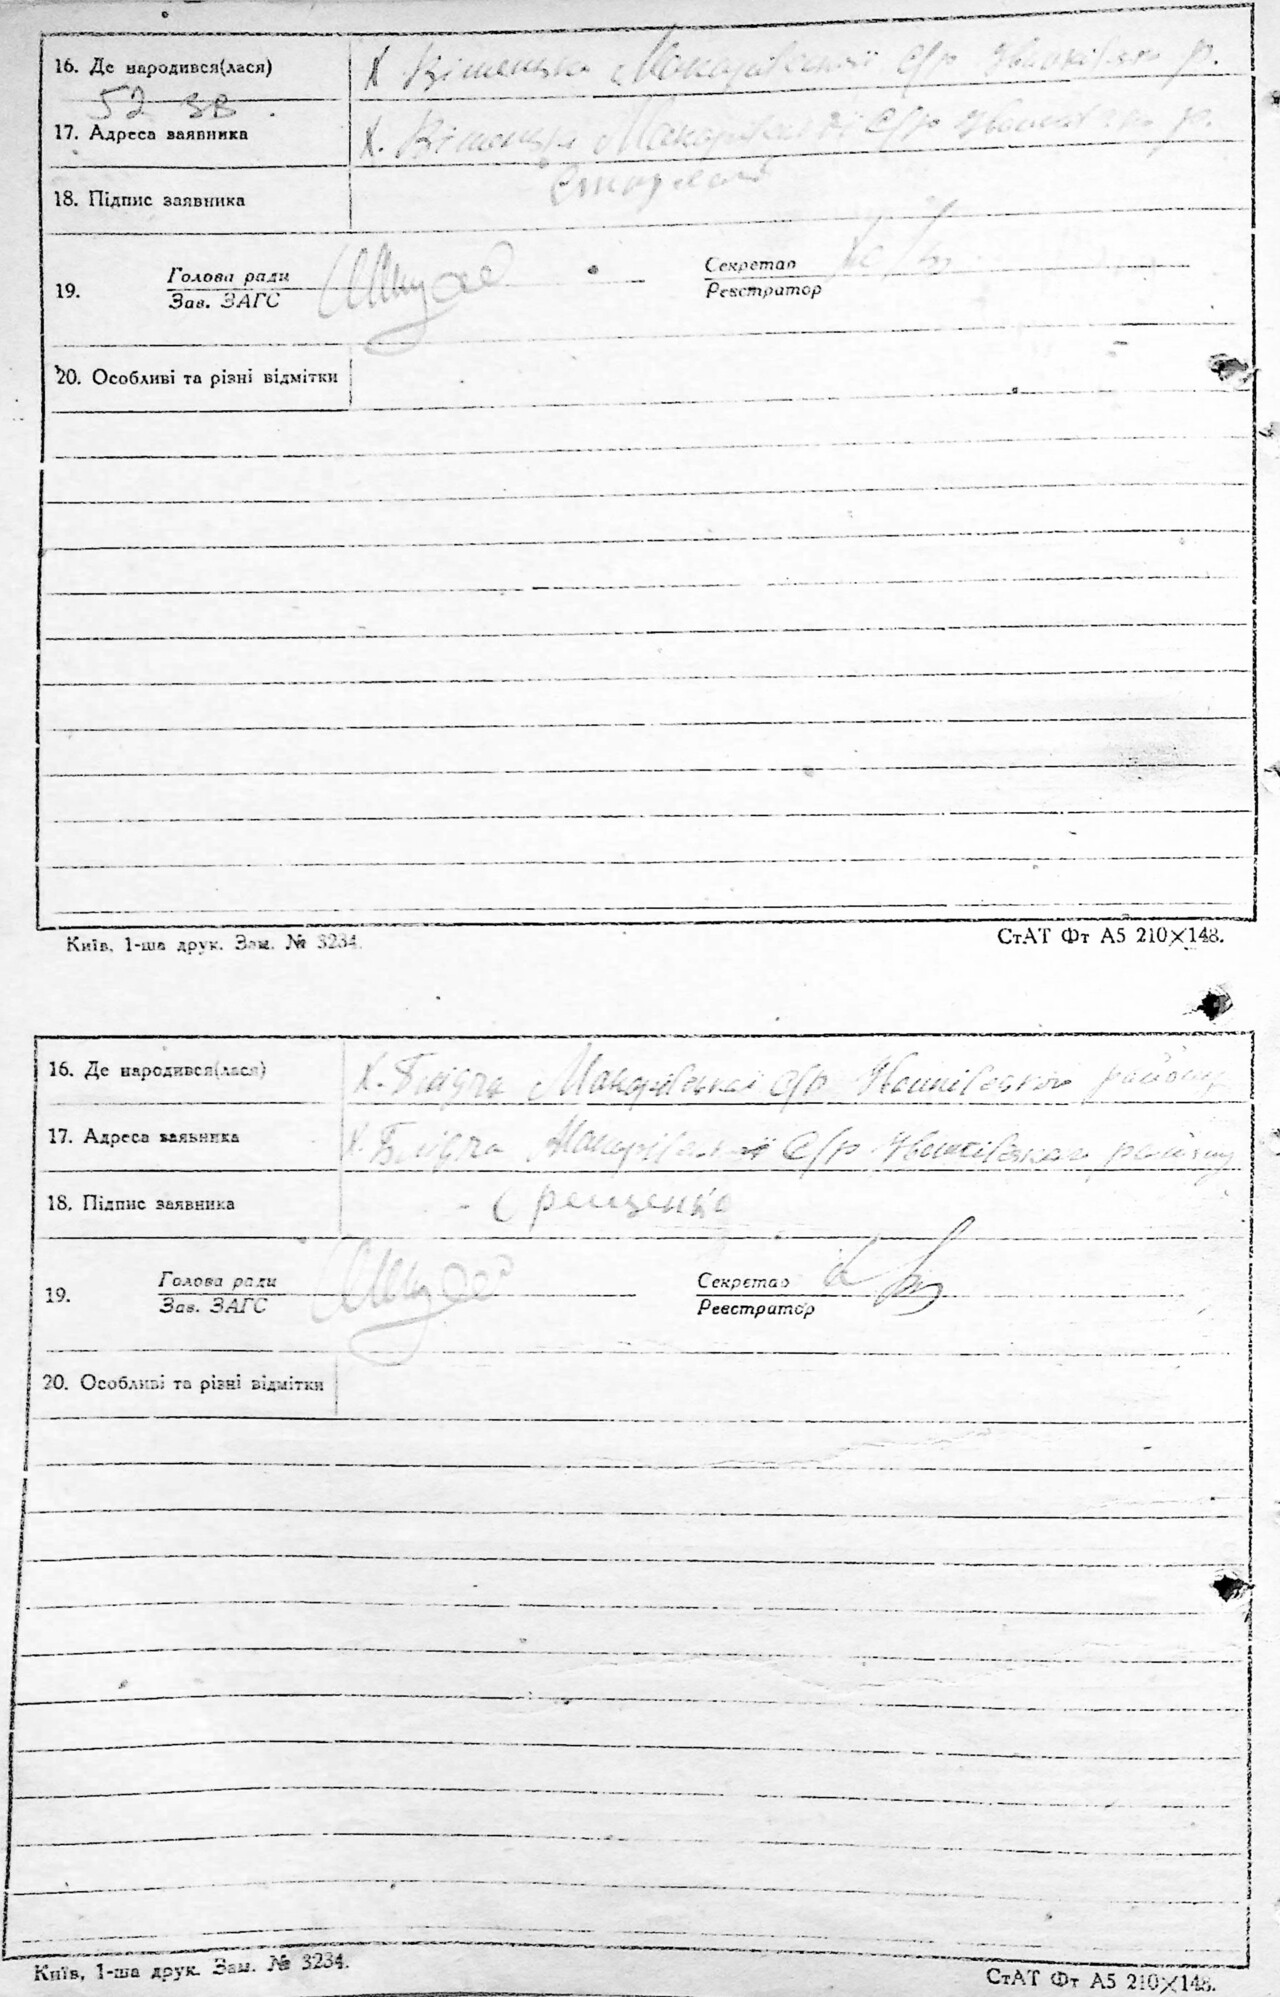 16. Де народився(лася) Х. Макарівської с/р Іванківськ р.
52 зв.
17. Адреса заявника Х. Макарівської с/р р.
18. Підпис заявника
19. Голова ради Секретар
Зав. ЗАГС Реєстратор
20. Особливі та різні відмітки
Київ, 1-ша друк. Зам. № 3234.
СтАТ Фт А5 210×148.
16. Де народився(лася) Х. Блідча Макарівської с/р Іванківського району
17. Адреса заявника Х. Блідча Макарівської с/р Іванківського району
18. Підпис заявника
19. Голова ради Секретар
Зав. ЗАГС Реєстратор
20. Особливі та різні відмітки
Київ, 1-ша друк. Зам. № 3234.
СтАТ Фт А5 210×148.